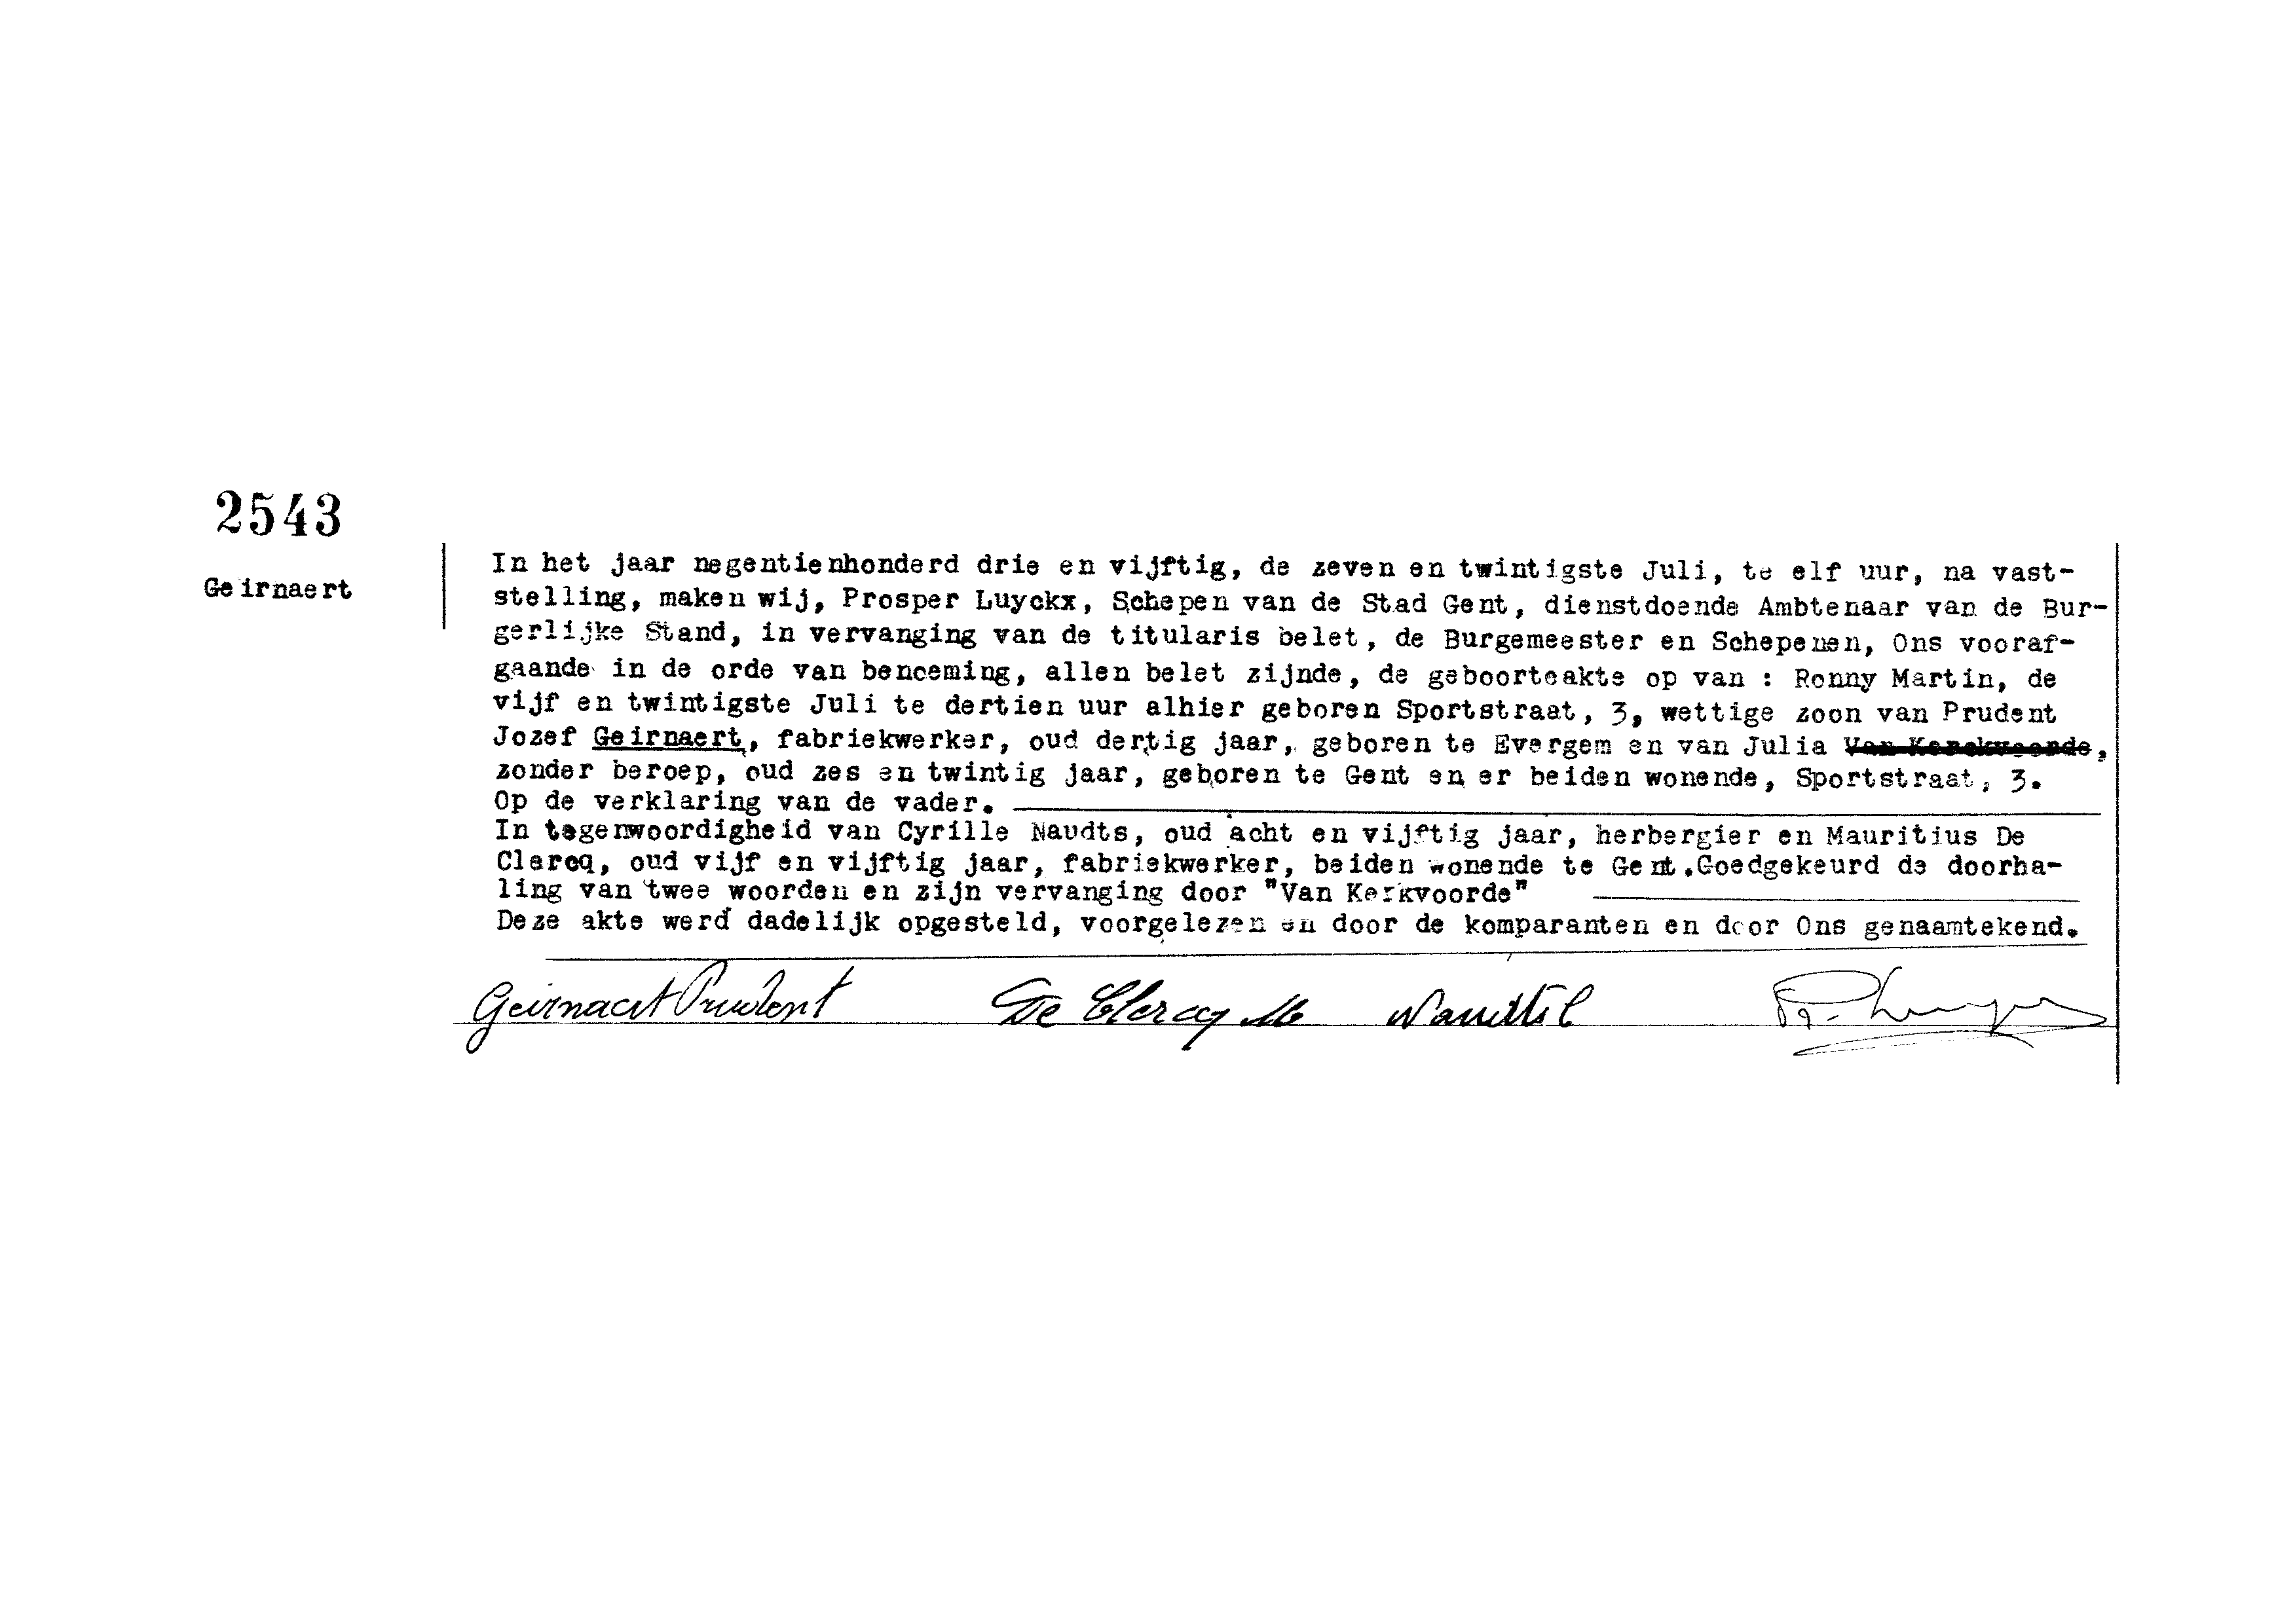 2543
Geirnaert
In het jaar negentienhonderd drie en vijftig, de zeven en twintigste Juli, te elf uur, na vast-
stelling, maken wij, Prosper Luyckx, Schepen van de Stad Gent, dienstdoende Ambtenaar van de Bur-
gerlijke Stand, in vervanging van de titularis belet, de Burgemeester en Schepenen, Ons vooraf-
gaande in de orde van benoeming, allen belet zijnde, de geboorteakte op van : Ronny Martin, de
vijf en twintigste Juli te dertien uur alhier geboren Sportstraat, 3, wettige zoon van Prudent
Jozef Geirnaert, fabriekwerker, oud dertig jaar, geboren te Evergem en van Julia Van ,
zonder beroep, oud zes en twintig jaar, geboren te Gent en er beiden wonende, Sportstraat, 3.
Op de verklaring van de vader.
In tegenwoordigheid van Cyrille Naudts, oud acht en vijftig jaar, herbergier en Mauritius De
Clercq, oud vijf en vijftig jaar, fabriekwerker, beiden wonende te Gent.Goedgekeurd de doorha-
ling van twee woorden en zijn vervanging door "Van Kerkvoorde"
Deze akte werd dadelijk opgesteld, voorgelezen en door de komparanten en door Ons genaamtekend.
Geirnaert Prudent De Clercq M Naudts C